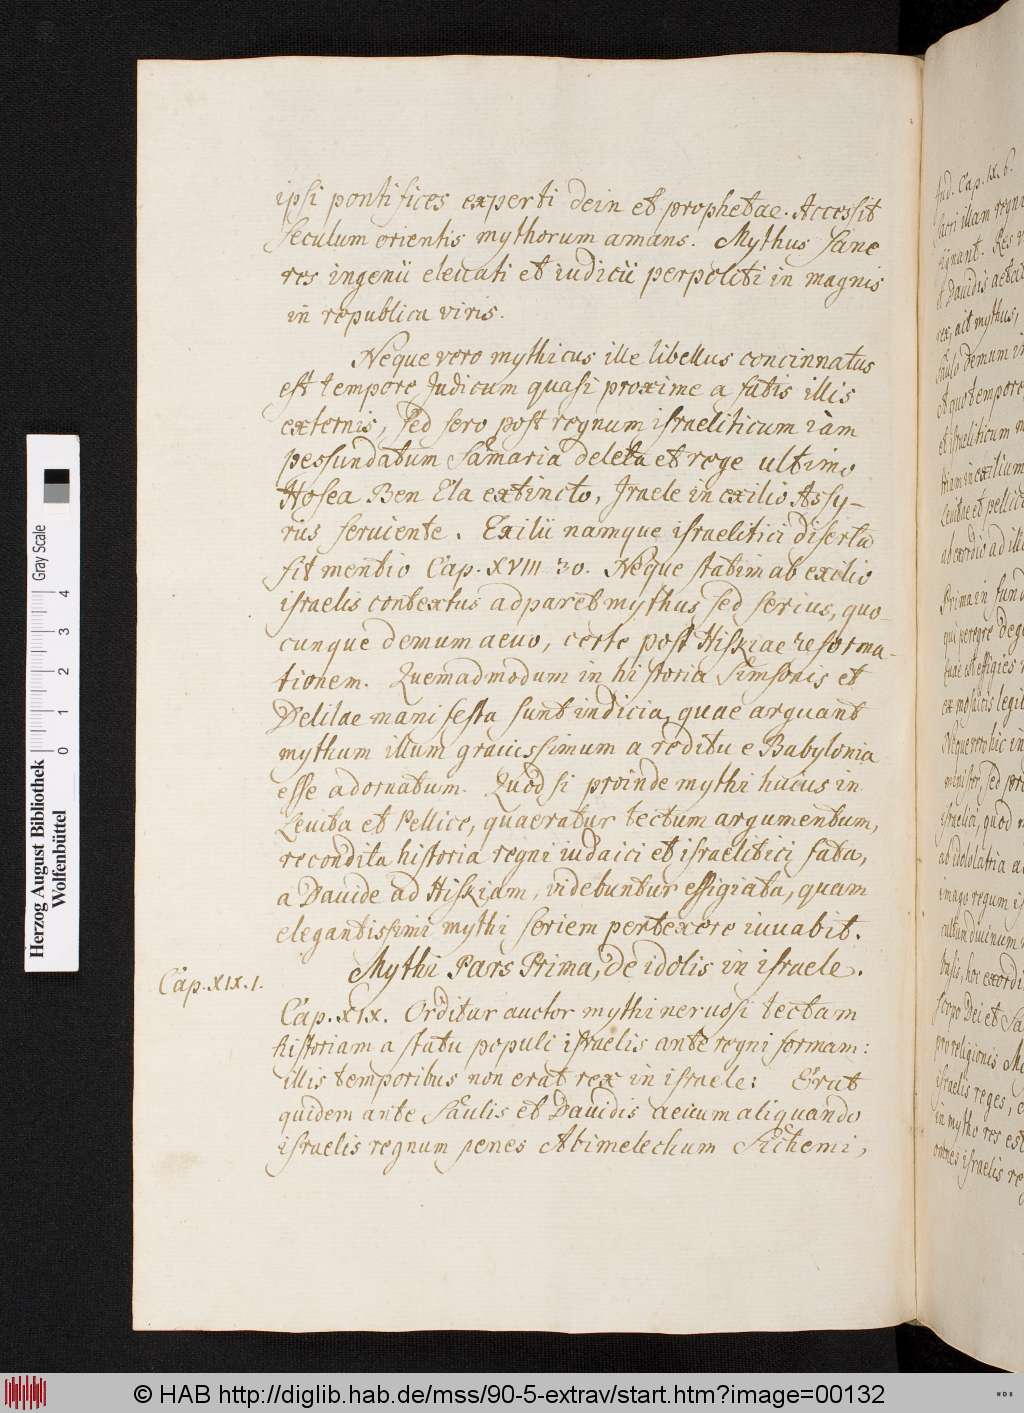 ipsi pontifices experti dein et prophetae. Accessit
seculum orientis mythorum amans. Mythus sane
res ingenii eleuati et iudicii perpoliti in magnis
in republica viris.
Neque vero mythicus ille libellus concinnatus
est tempore Judicum quasi proxime a fatis illis
externis, sed sero post regnum israeliticum iàm
pessundatum Samaria deleta et rege ultimo
Hosea Ben Ela extincto, Jsraele in exilio Assy-
rus seruiente. Exilii namque israelitici diserta
fit mentio Cap. XVIII 30. Neque statim ab exilio
israelis contextus adparet mythus sed serius, quo-
cunque demum aeuo, certe post Hiskiae reforma-
tionem. Quemadmodum in historia Simsonis et
Delilae manifesta sunt indicia, quae arguant
mythum illum grauissimum a reditu e Babylonia
esse adornatum. Quod si proinde mythi huius in
Leuita et Pellice, quaeratur tectum argumentum,
recondita historia regni iudaici et israelitici fata,
a Dauide ad Hiskiam, videbuntur effigiata, quam
elegantissimi mythi seriem pertexere iuuabit.
Mythi Pars Prima, De idolis in israele.
Cap. XIX. 1.
Cap. XIX. Orditur auctor mythi neruosi tectam
historiam a statu populi israelis ante regni formam:
illis temporibus non erat rex in israele: Erat
quidem ante Saulis et Dauidis aeuum aliquando
israelis regnum penes Abimelechum Sichemi,
Jud. Cap. IX. 6.
Herzog August Bibliothek
Wolfenbüttel
Gray Scale
0 1 2 3 4
© HAB http://diglib.hab.de/mss/90-5-extrav/start.htm?image=00132